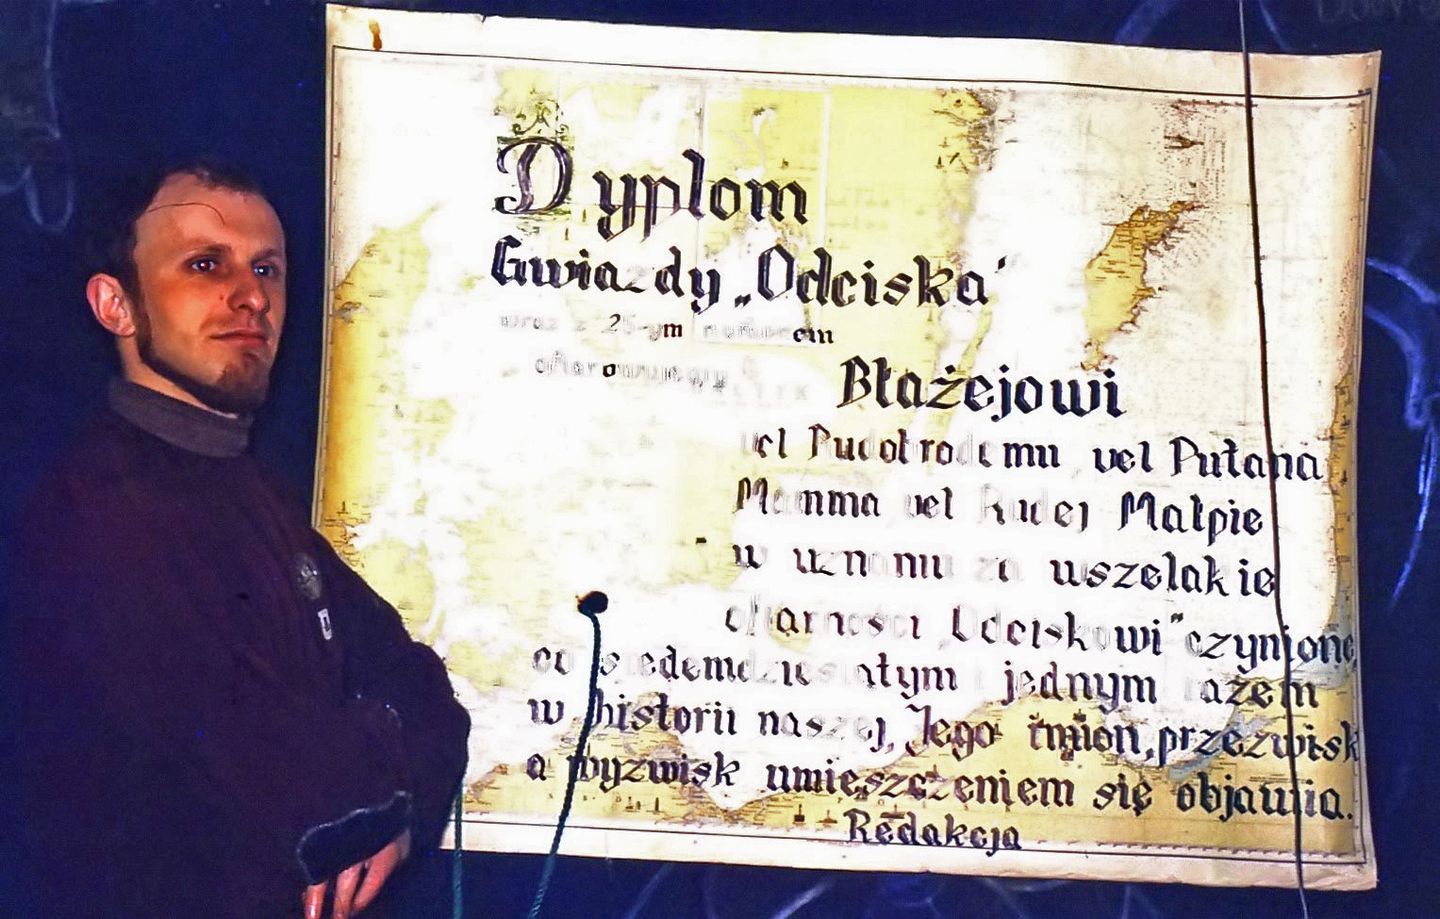 Dyplom
Gwiazdy „Odciska"
wraz z 25-ym numerem
ofiarowujemy
Błażejowi
vel Pudobrodemu, vel Putana
Mamma vel Rudej Małpie
w uznaniu za wszelakie
ofiarności „Odciskowi" czynione,
co siedemdziesiątym jednym razem
w historii naszej, Jego imion, przezwisk
a wyzwisk umieszczeniem się objawia.
Redakcja